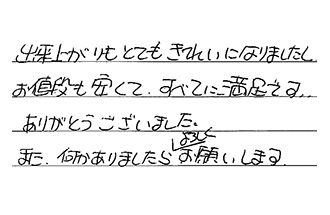 出来上がりもとてもきれいになりましたし
お値段も安くて、すべてに満足です。
ありがとうございました。
また、何かありましたらよろしくお願いします。